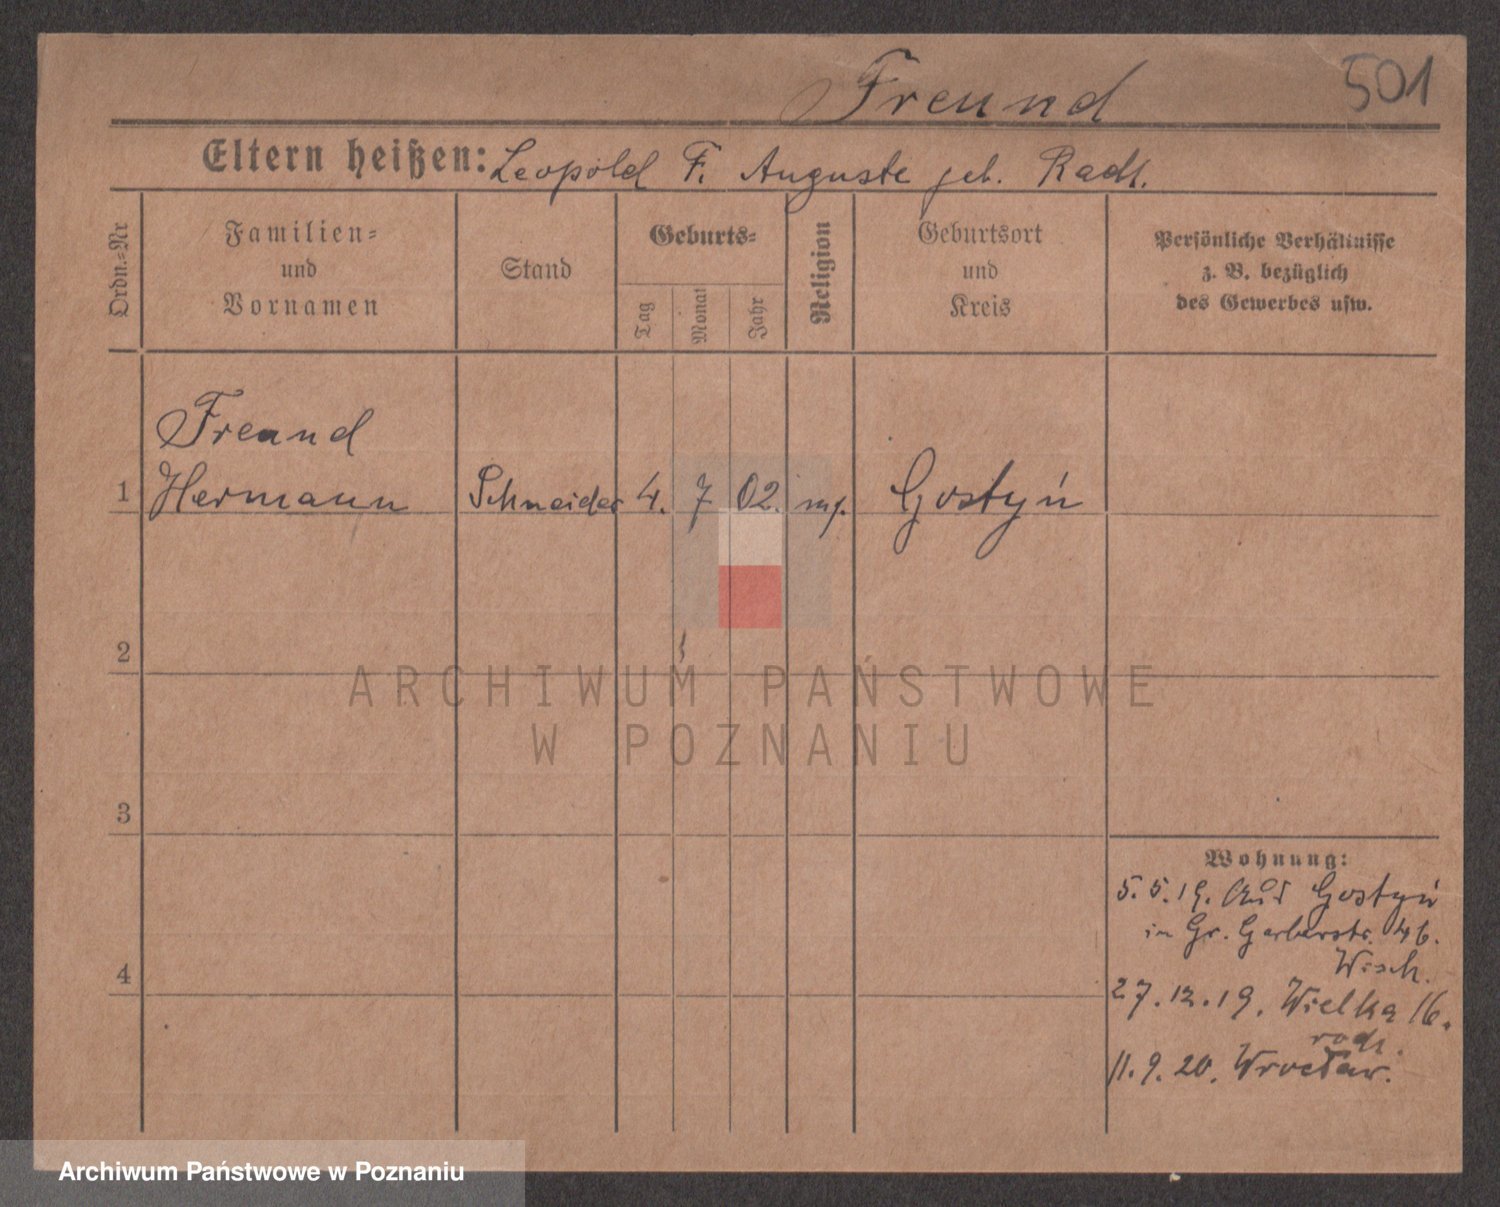 Freund
501
Eltern heißen: Leopold F. Auguste geb. Radt.
Ordn.-Nr
Familien-
und
Vornamen
Stand
Geburts-
Tag
Monat
Jahr
Religion
Geburtsort
und
Kreis
Persönliche Verhältnisse
z. B. bezüglich
des Gewerbes usw.
Freund
1 Hermann Schneider 4. 7 02. Gostyń
2
3
4
Wohnung:
5. 5. 19. aus Gostyń
in Gr. Gerberstr. 46.
27. 12. 19. Wielka 16.
11. 9. 20. Wrocław.
ARCHIWUM PAŃSTWOWE
W POZNANIU
Archiwum Państwowe w Poznaniu